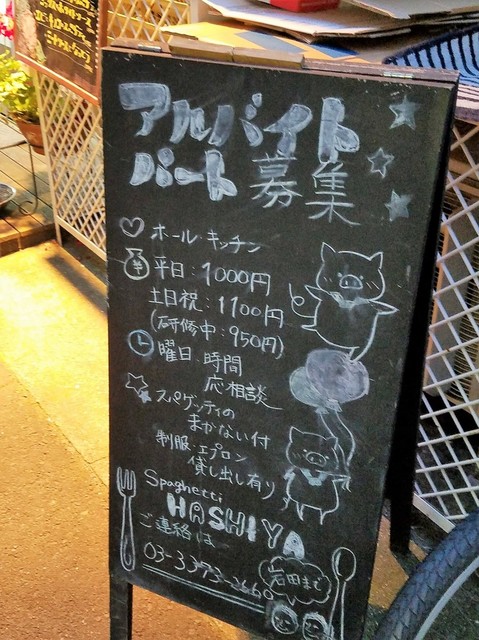 アルバイト
パート 募集
ホール・キッチン
¥ 平日：1000円
土日祝：1100円
(研修中：950円)
曜日・時間
応相談
スパゲッティの
まかない付
制服・エプロン
貸し出し有り
Spaghetti
HASHIYA
ご連絡は
03-3373-2660
岩田まで